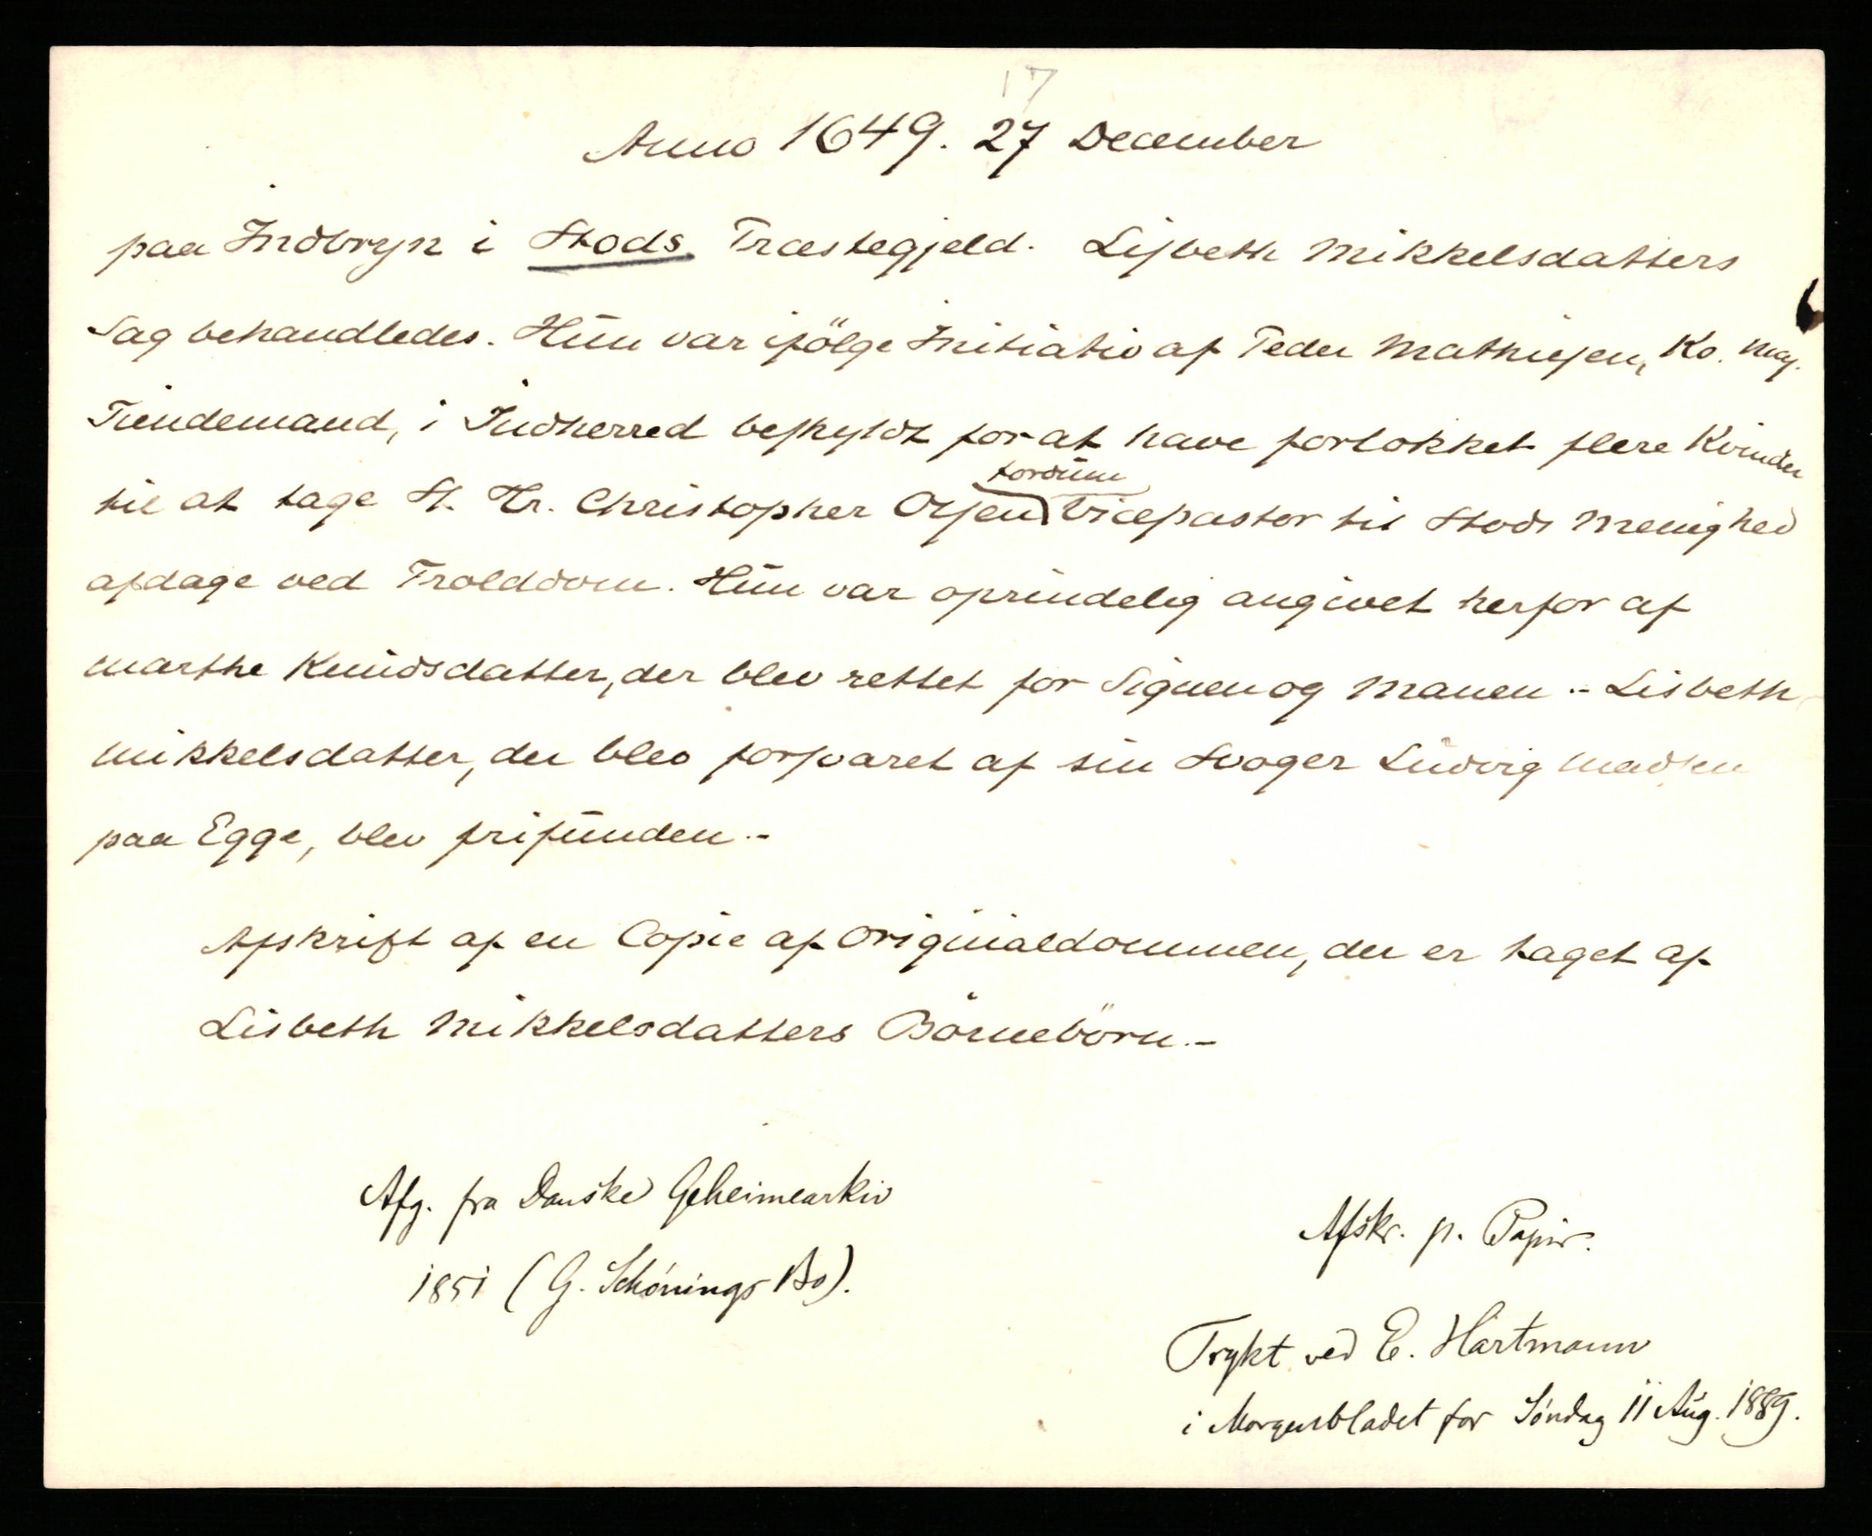 17
Anno 1649. 27 December
paa Indbryn i Stods Præstegjeld. Lisbeth Mikkelsdatters
Sag behandledes. Hun var ifölge Initiativ af Peder Mathiesen, Ko. May.
Tiendemand, i Indherred beskyldt for at have forlokket flere Kvinder
fordum
til at tage S. Hr. Christopher Olsen Vicepastor til Stods Menighed
afdage ved Trolddom. Hun var oprindelig angivet herfor af
Marthe Knudsdatter, der blev rettet for Signen og Manen.- Lisbeth
Mikkelsdatter, der blev forsvaret af sin Svoger Ludvig Madsen
paa Egge, blev frifunden.-
Afskrift af en Copie af Originaldommen, der er taget af
Lisbeth Mikkelsdatters Börnebörn.-
Afg. fra Danske Geheimearkiv
1851 (G. Schönings Bo).
Afskr. p. Papir.
Trykt ved E. Hartmann
i Morgenbladet for Söndag 11 Aug. 1889.